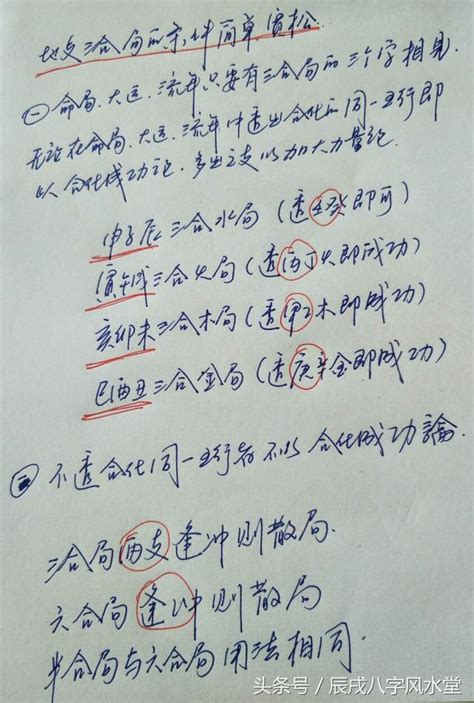 地支三合局的条件简单宽松
㊀命局、大运、流年只要有三合局的三个字相见
无论在命局、大运、流年中透出合化的同一五行即
以合化成功论，多出之支以加大力量论
申子辰三合水局（透壬癸即可）
寅午戌三合火局（透丙丁火即成功）
亥卯未三合木局（透甲乙木即成功）
巳酉丑三合金局（透庚辛金即成功）
㊁不透合化同一五行者不以合化成功論.
三合局两支逢冲则散局.
六合局逢冲则散局
半合局与六合局用法相同.
头条号/辰戌八字风水堂